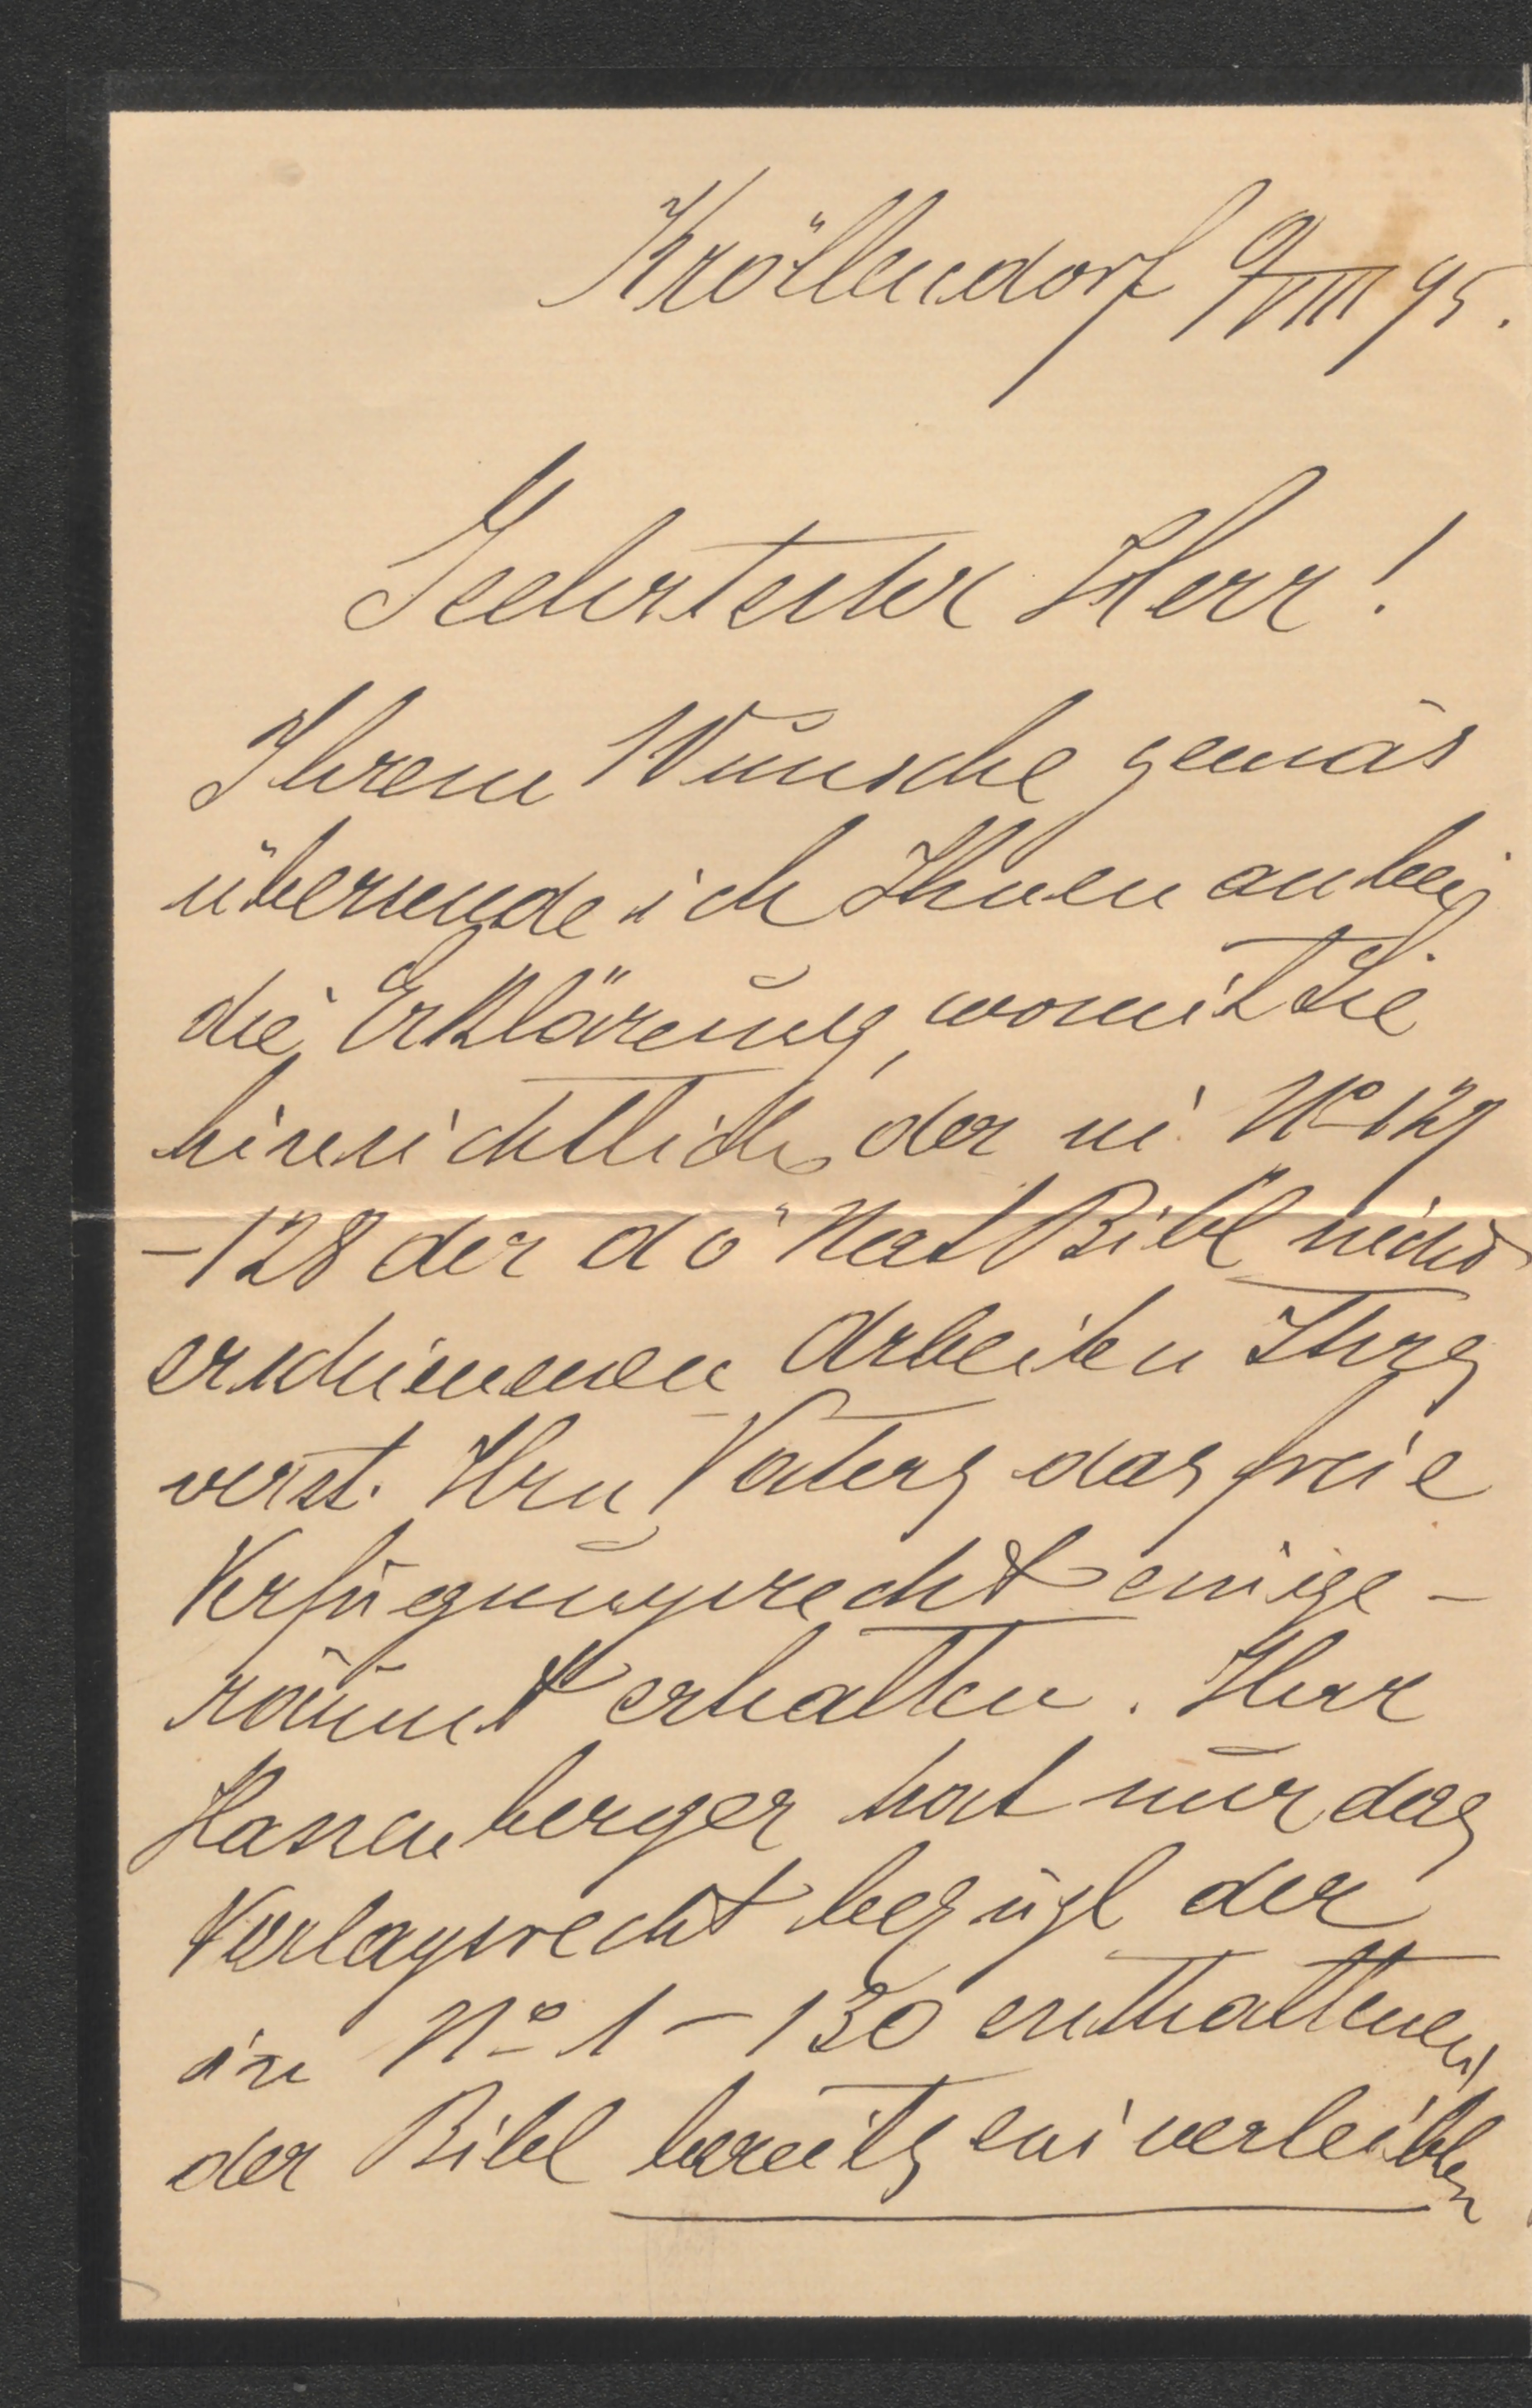 Kröllendorf 9/VIII 95.
Geehrtester Herr!
Ihrem Wunsche gemäs
übersende ich Ihnen anbei
die Erklärung, womit Sie
hinsichtlich der in No 127
-128 der allg Nat Bibl nicht
erschienenen Arbeiten Ihres
verst. Hrn Vaters das freie
Verfügungsrecht einge-
räumt erhalten. Herr
Hassenberger hat nur das
Verlagsrecht bezügl der
in No 1 - 130 enthaltenen,
der Bibl bereits einverleibten